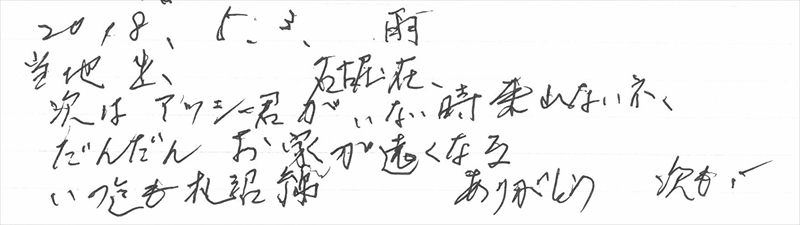 2018、5、3、雨
当地出、 名古屋在、
次はアツシ君がいない時乗れないネ、
だんだん お家が遠くなる
いつ迄も札沼線 ありがとう 次も